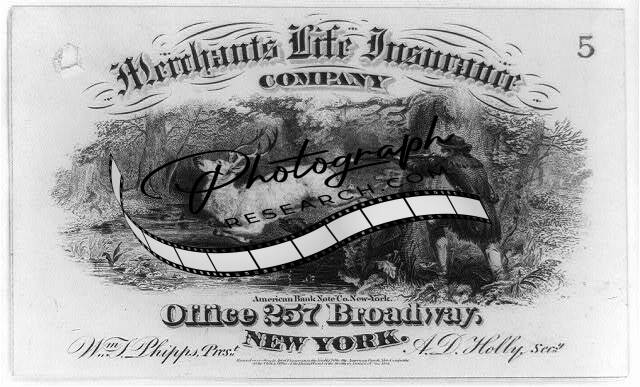 Merchants Life Insurance
5
COMPANY
Photograph
RESEARCH.COM
American Bank Note Co. New-York.
Office 257 Broadway,
NEW YORK.
Wm. T. Phipps, Prest.
A. D. Holly, Secy.